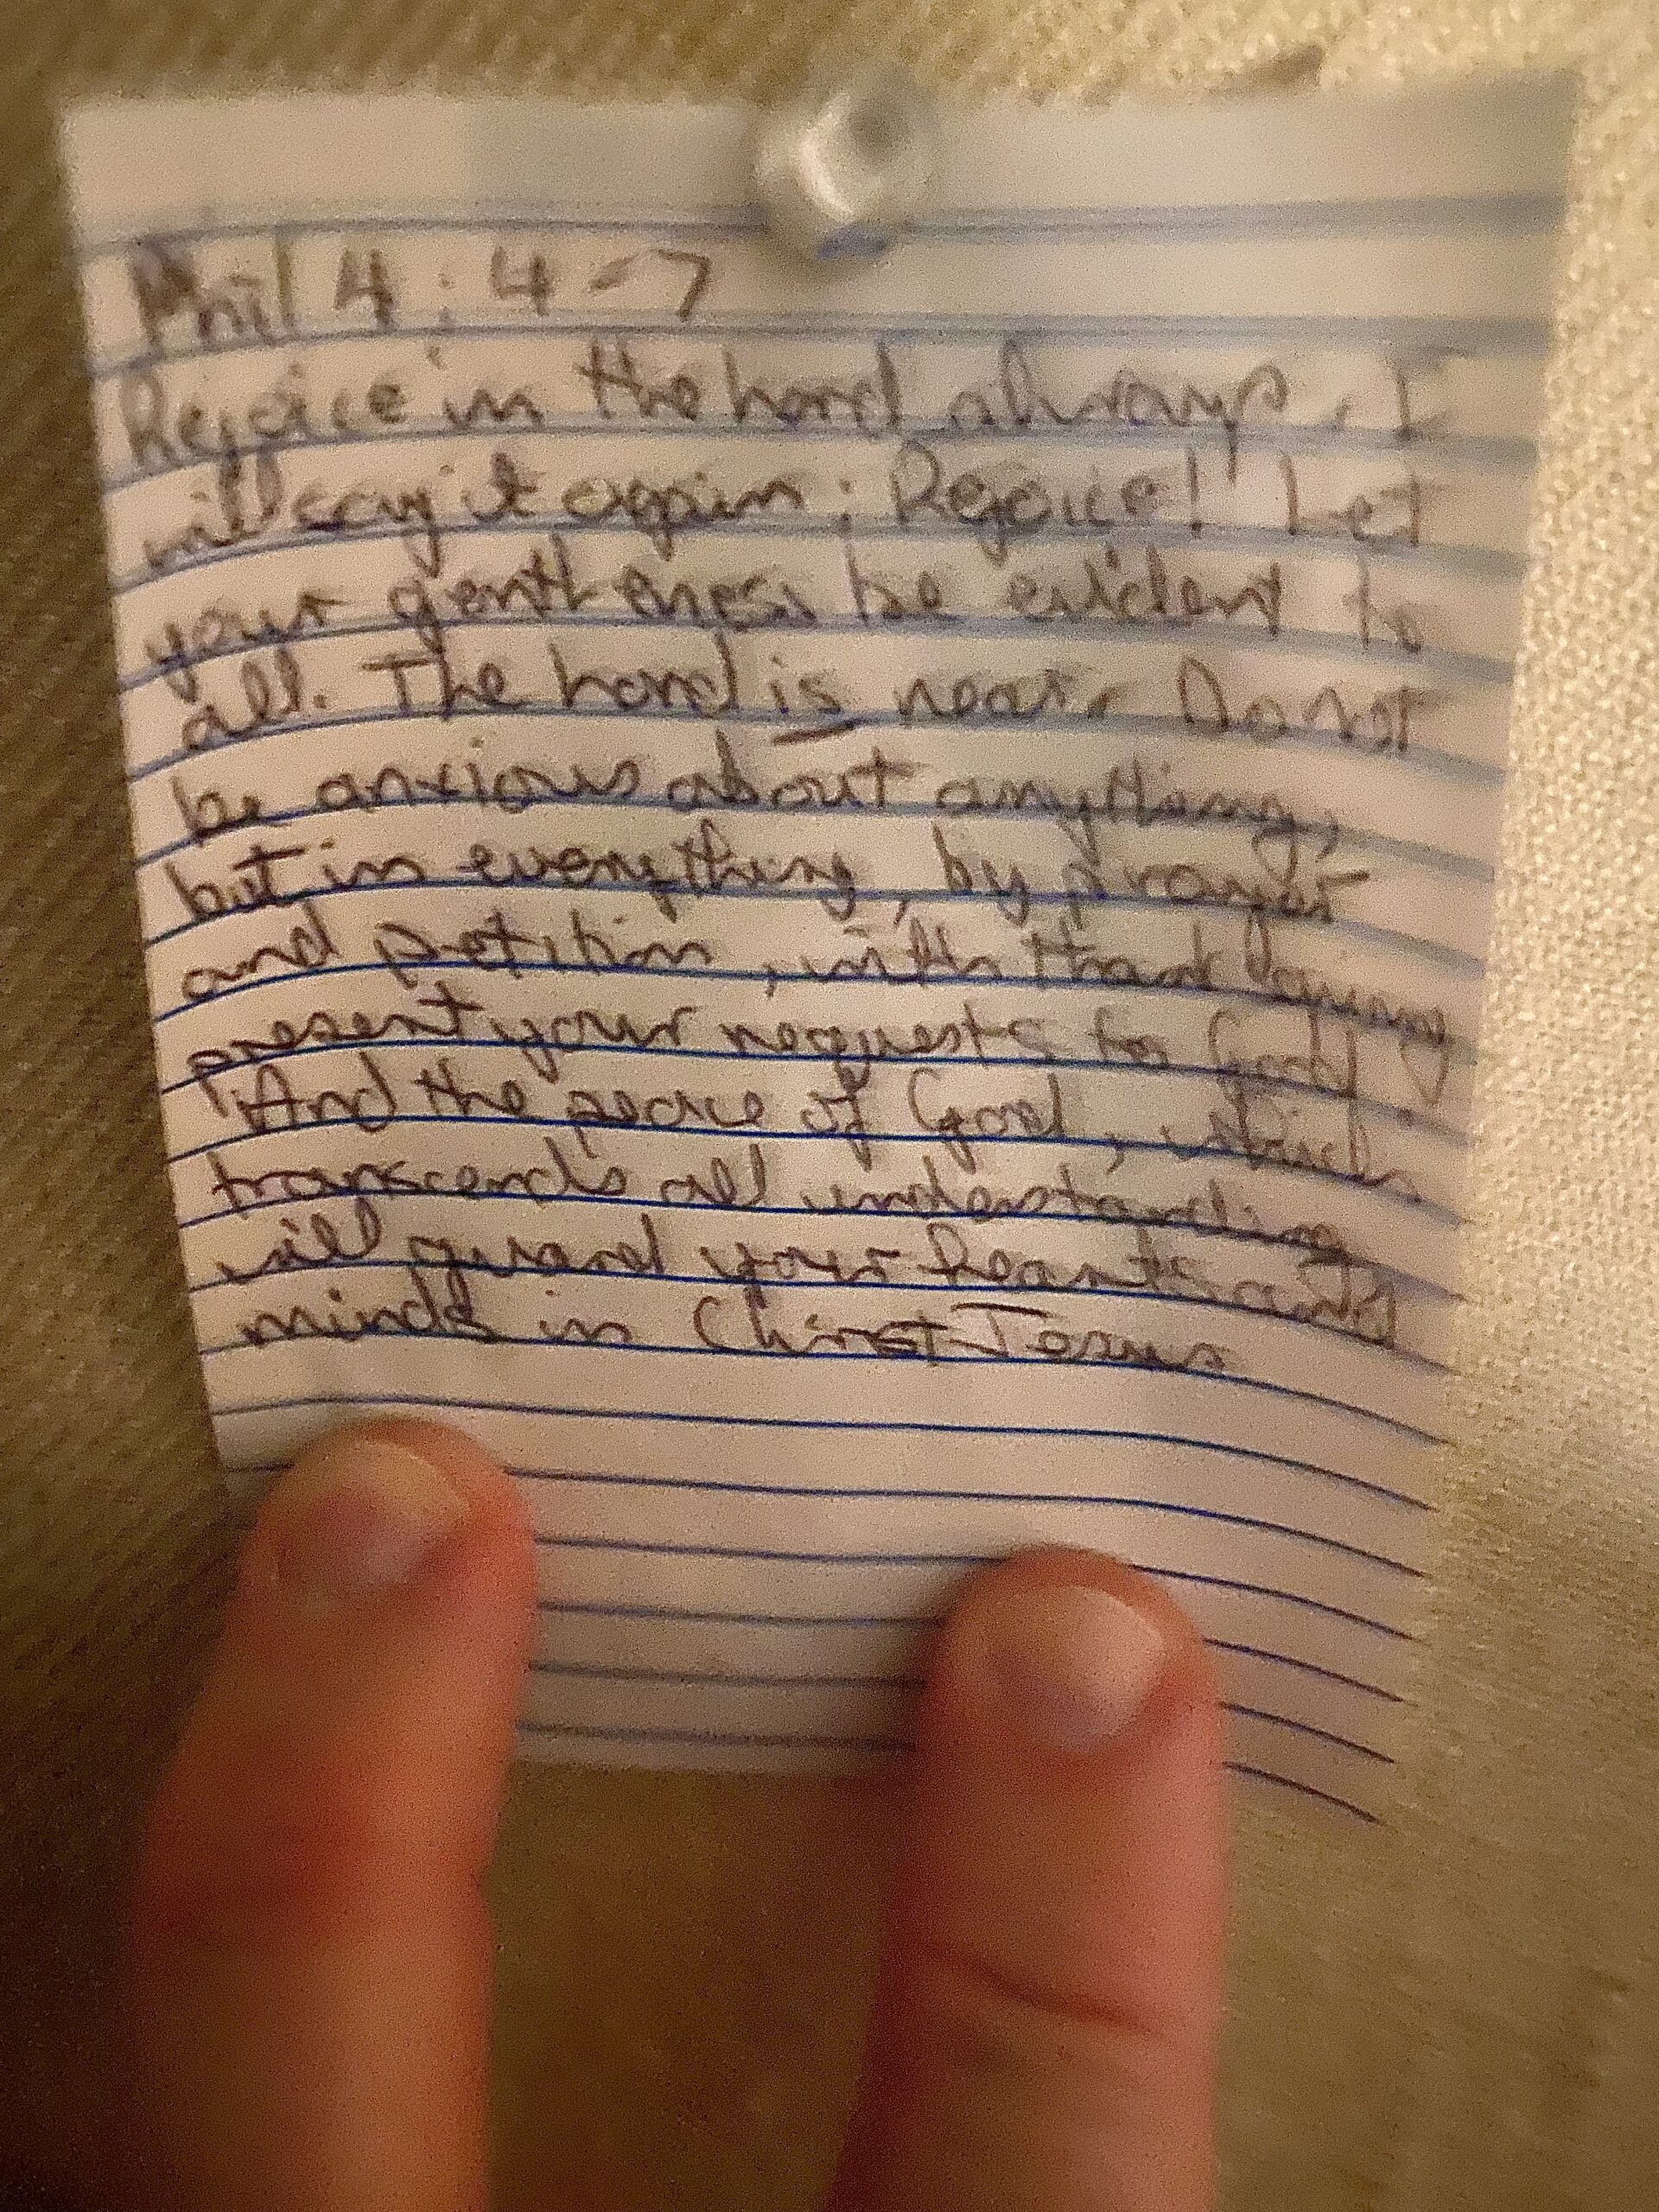 Phil 4:4-7
Rejoice in the Lord always. I
will say it again: Rejoice! Let
your gentleness be evident to
all. The Lord is near. Do not
be anxious about anything,
but in everything, by prayer
and petition, with thanksgiving
present your requests to God
And the peace of God, which
transcends all understanding
will guard your hearts and
minds in Christ Jesus